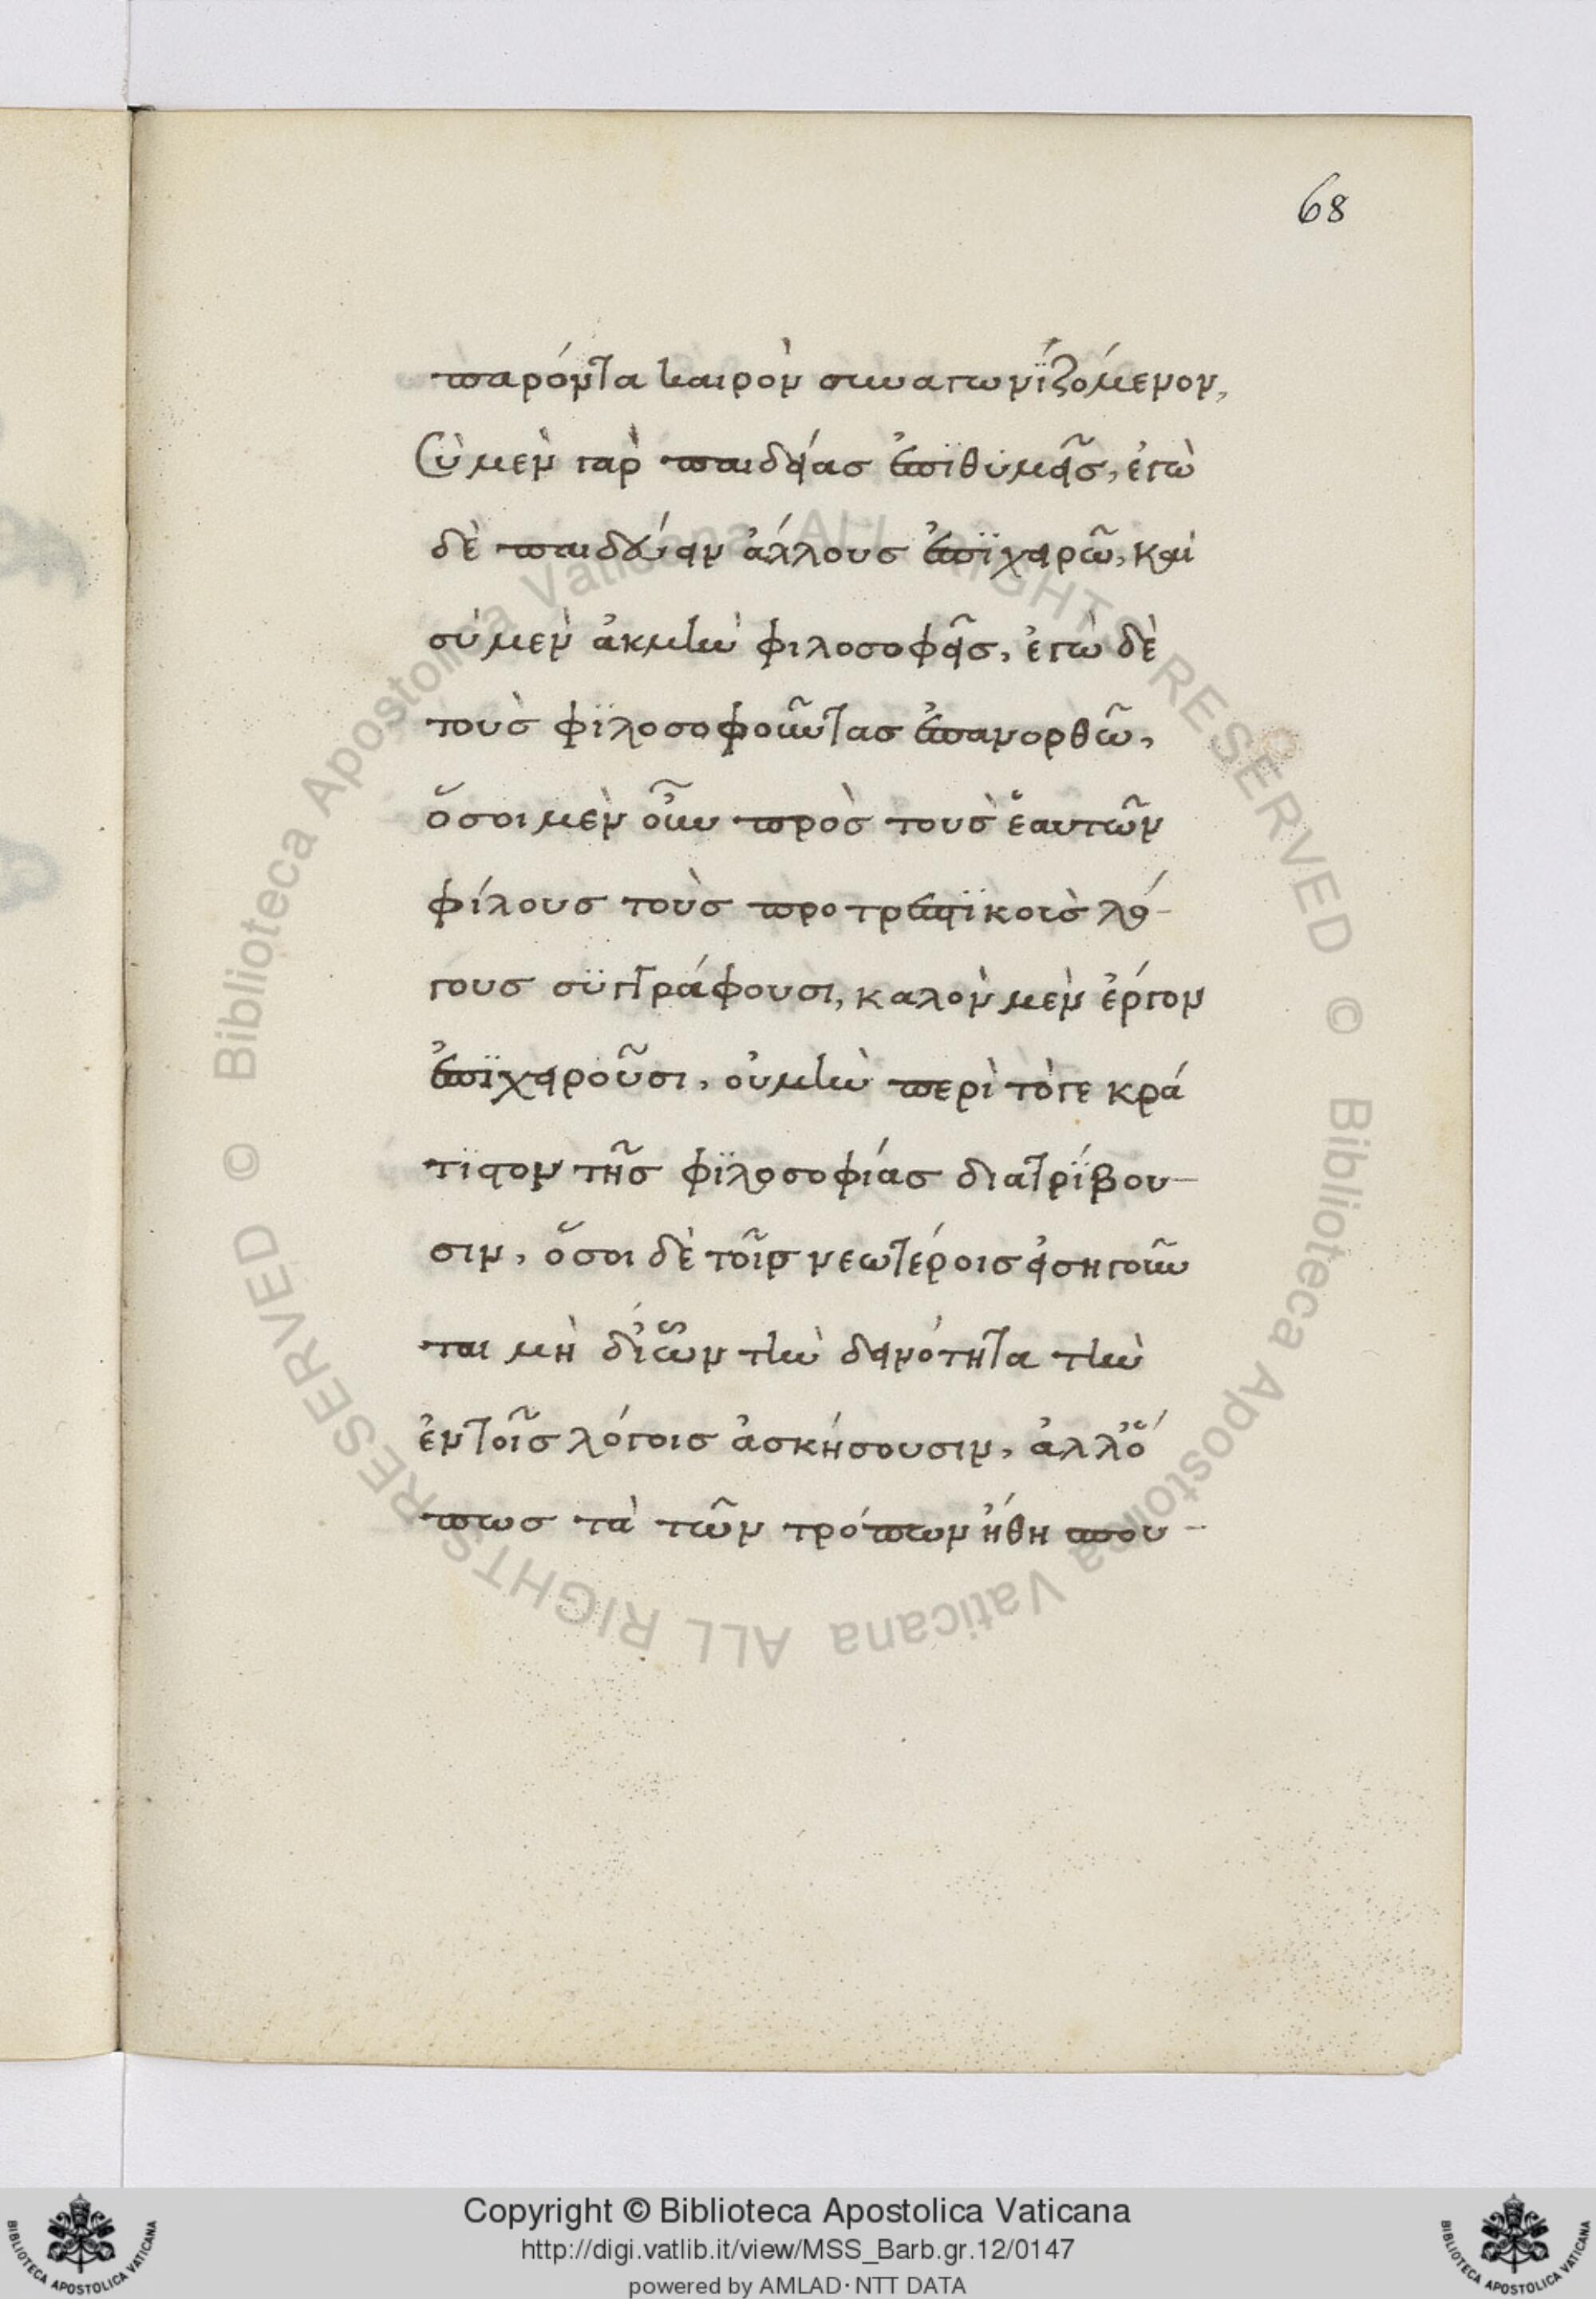 68
παρόντα καιρὸν συναγωνϊζόμενον,
Σὺ μὲν γὰρ παιδείας ἐπϊθυμεῖς, ἐγὼ
δὲ παιδεύειν ἄλλους ἐπϊχειρῶ, καὶ
σὺ μὲν ἀκμὴν φιλοσοφεῖς, ἐγὼ δὲ
τοὺς φϊλοσοφοῦντας ἐπανορθῶ,
ὅσοι μὲν οὖν πρὸς τοὺς ἑαυτῶν
φίλους τοὺς προτρεπϊκοὶς λό-
γους συγγράφουσι, καλὸν μὲν ἔργον
ἐπϊχειροῦσι, οὐ μὴν περὶ τὸ γε κρά
τϊστον τῆς φϊλοσοφίας διατρίβου-
σιν, ὅσοι δὲ τοῖς νεωτέροις εἰσηγοῦν
ται μὴ δἰὧν τὴν δεινότητα τὴν
ἐν τοῖς λόγοις ἀσκήσουσιν, ἀλλ᾽ὅ
πως τὰ τῶν τρόπων ἤθη σπου-
© Biblioteca Apostolica Vaticana ALL RIGHTS RESERVED © Biblioteca Apostolica Vaticana ALL RIGHTS RESERVED
Copyright © Biblioteca Apostolica Vaticana
http://digi.vatlib.it/view/MSS_Barb.gr.12/0147
powered by AMLAD·NTT DATA
BIBLIOTECA APOSTOLICA VATICANA
BIBLIOTECA APOSTOLICA VATICANA